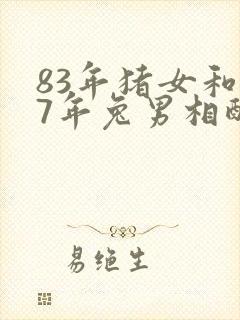 83年猪女和
7年兔男相配
易绝生